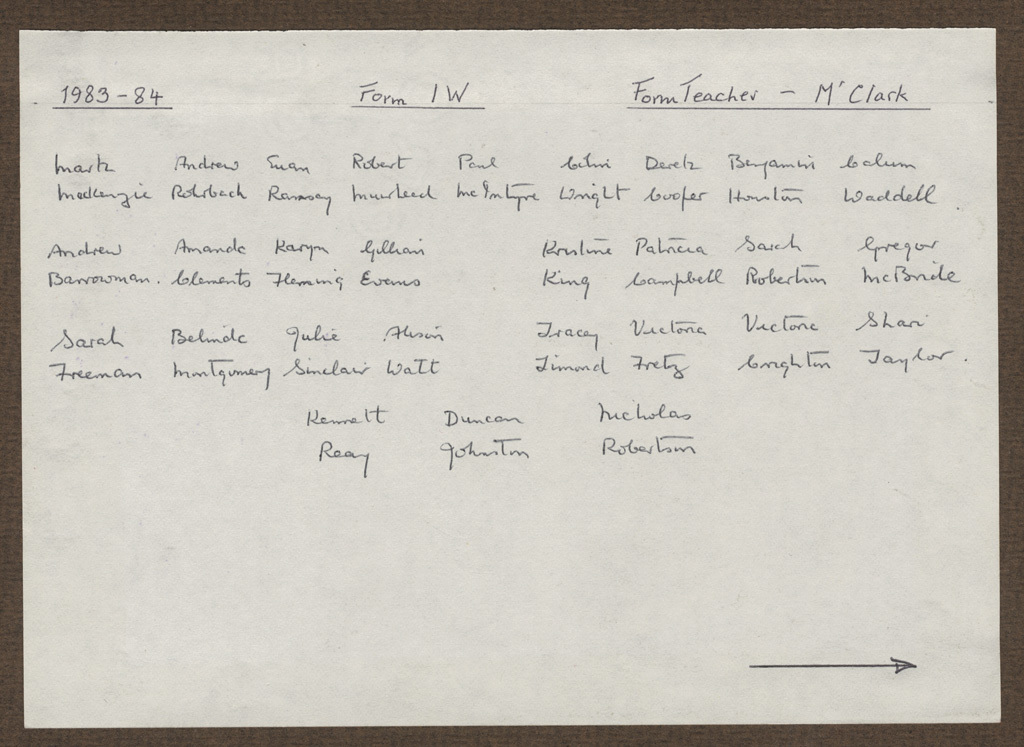 1983-84 Form 1W Form Teacher - Mr Clark
Mark Andrew Euan Robert Paul Colin Derek Benjamin Calum
MacKenzie Rohrbach Ramsay Muirhead McIntyre Wright Cooper Houston Waddell.
Andrew Amanda Karyn Gillian Kristine Patricia Sarah Gregor
Barrowman. Clements Fleming Evans King Campbell Robertson McBride
Sarah Belinda Julie Alison Tracey Victoria Victoria Shari
Freeman Montgomery Sinclair Watt Fretz Crighton Taylor.
Kenneth Duncan Nicholas
Reay Johnston Robertson